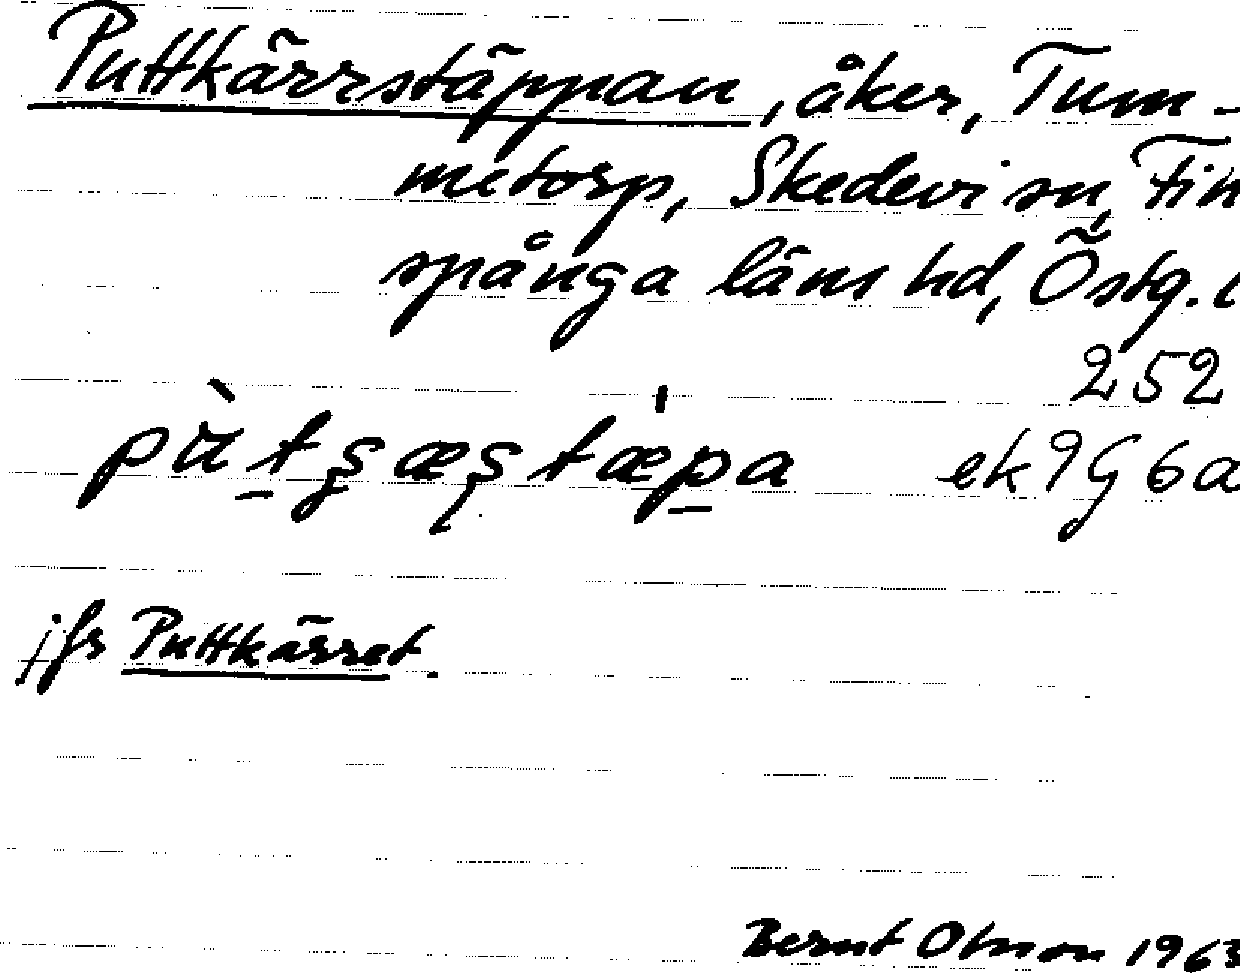 Puttkärrstäppan, åker, Tum-
metorp, Skedevi sn, Fin
spånga läns hd, Östg. l
252
pùtʂæʂtæpa ek 9G 6a
jfr Puttkärret.
Bernt Olsson 1963